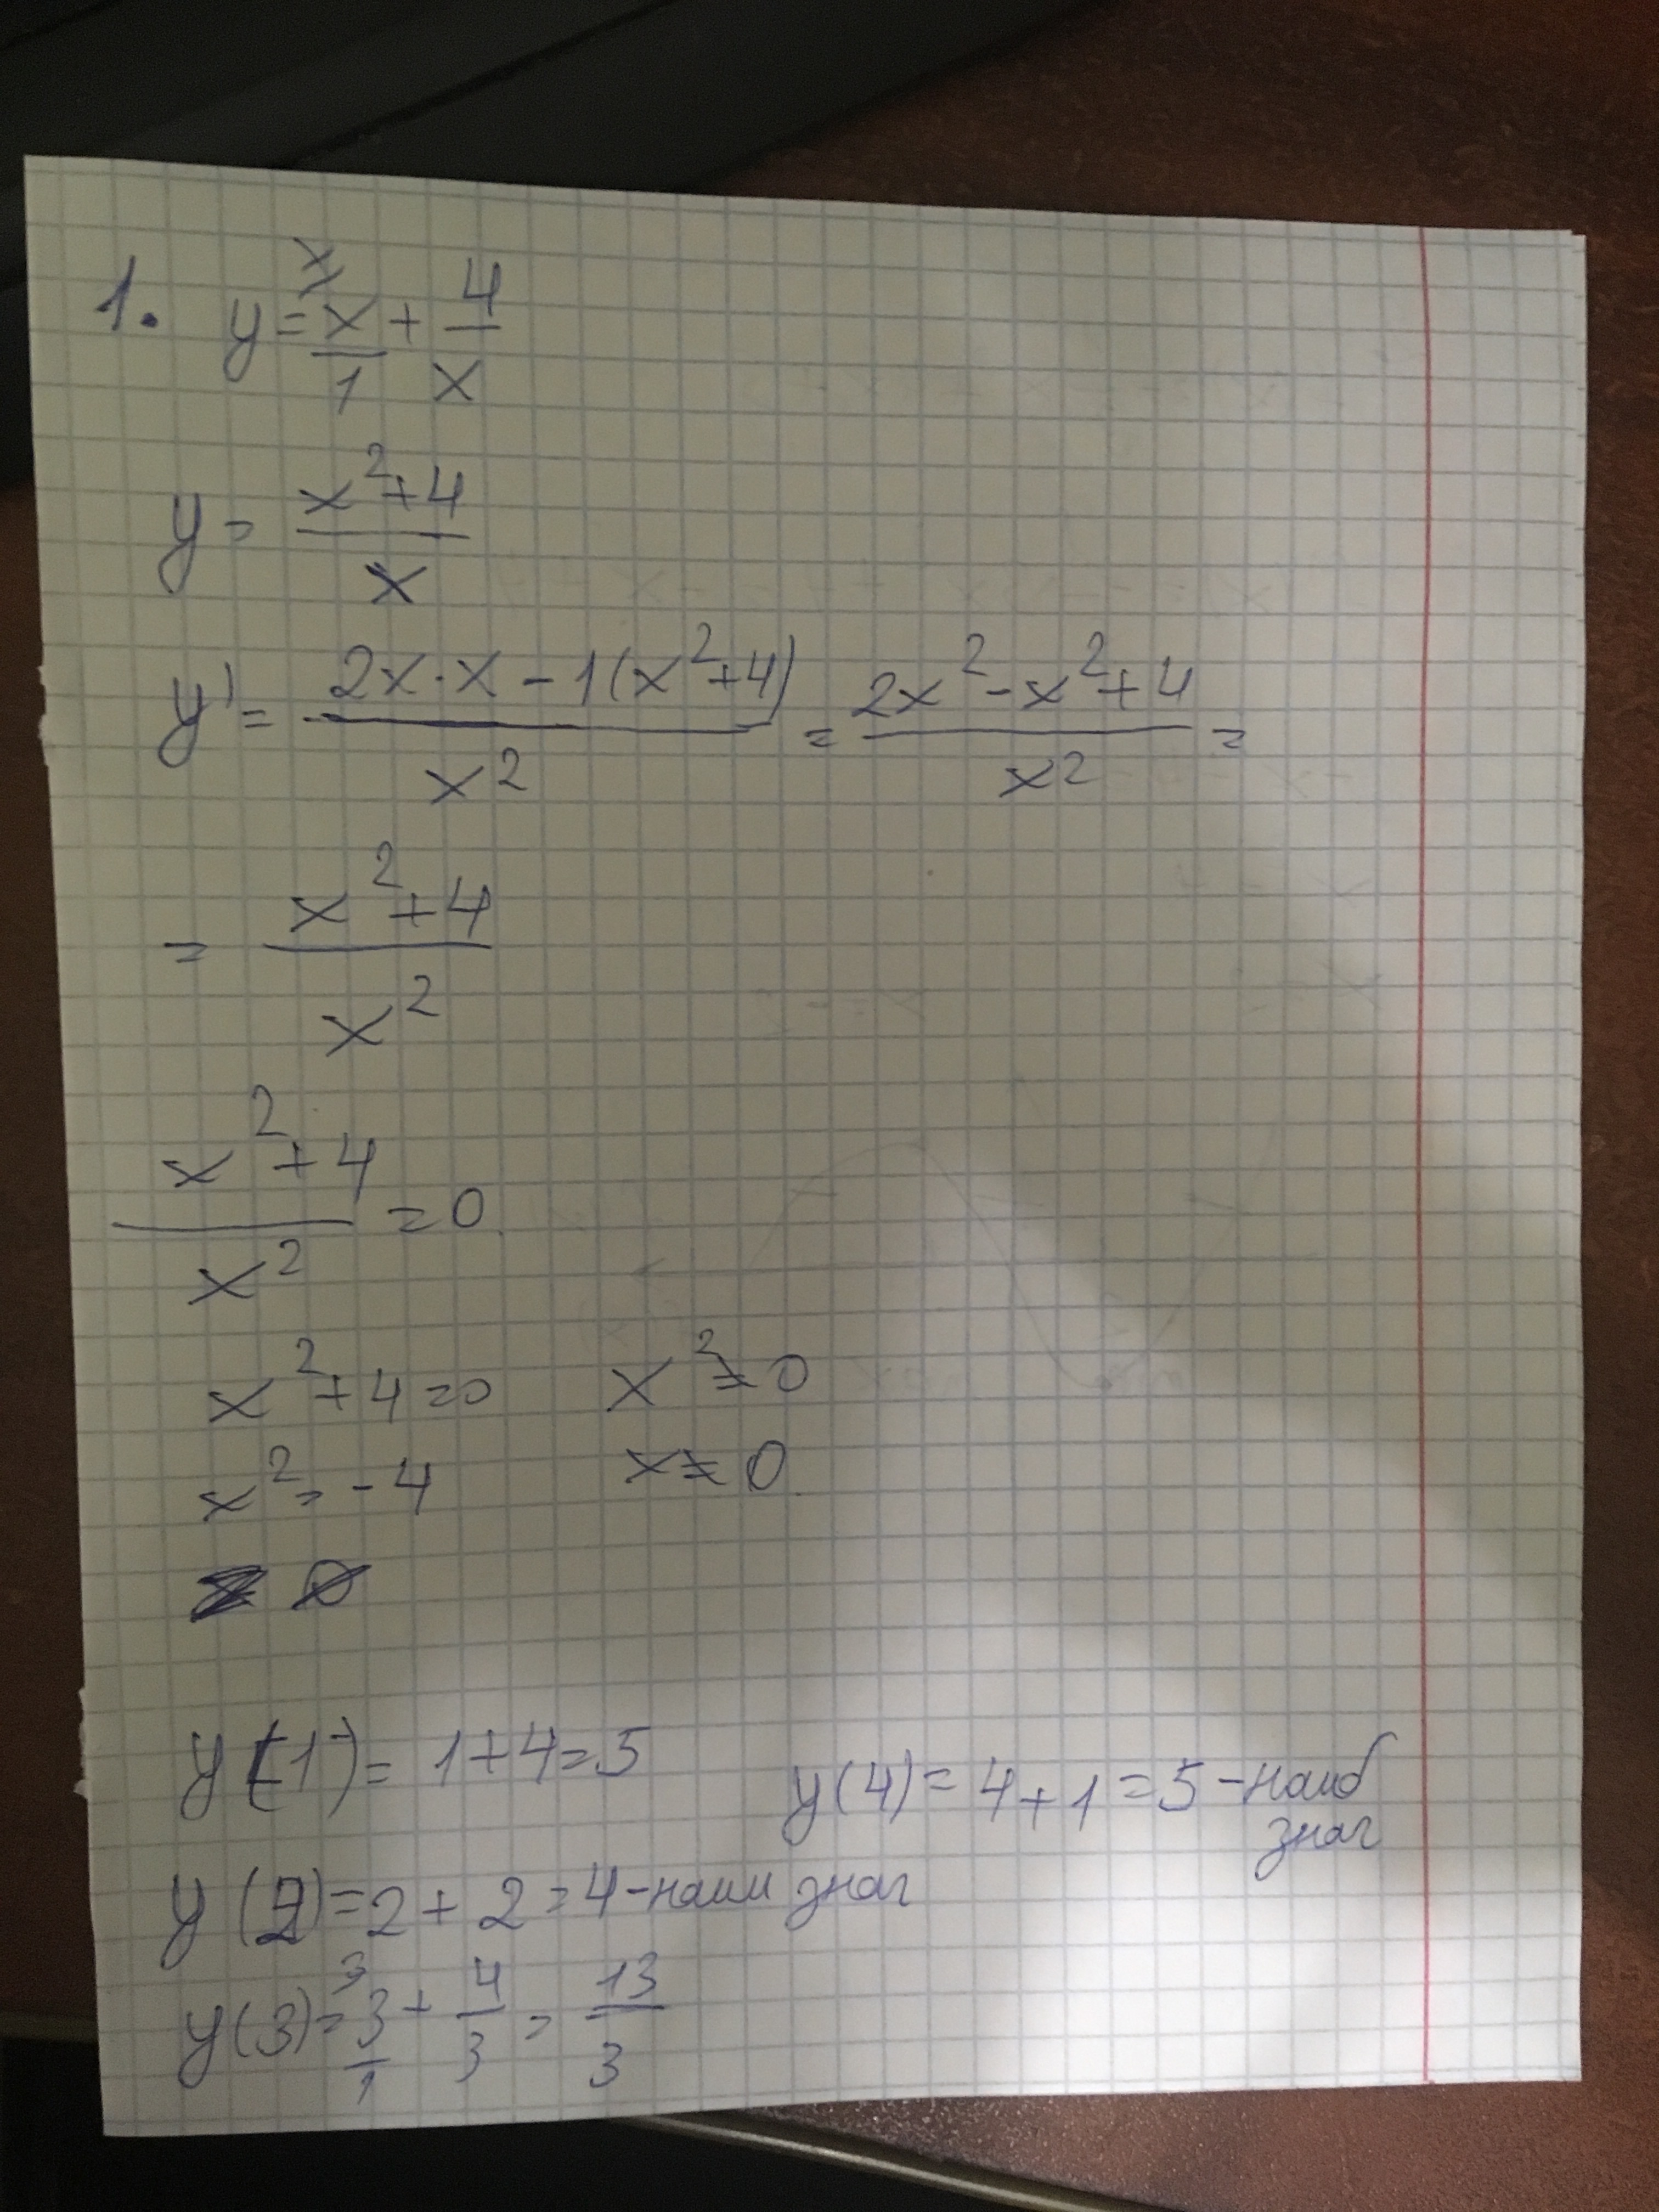 1. y = x/1 + 4/x
y = (x²+4)/x
y' = (2x·x - 1(x²+4))/x² = (2x² - x² + 4)/x² =
= (x²+4)/x²
(x²+4)/x² = 0
x²+4=0 x²≠0
x²=-4 x≠0
∅
y(1) = 1+4=5 y(4) = 4+1=5 - наиб
знач
y(2) = 2+2=4 - наим знач
y(3) = 3/1 + 4/3 = 13/3